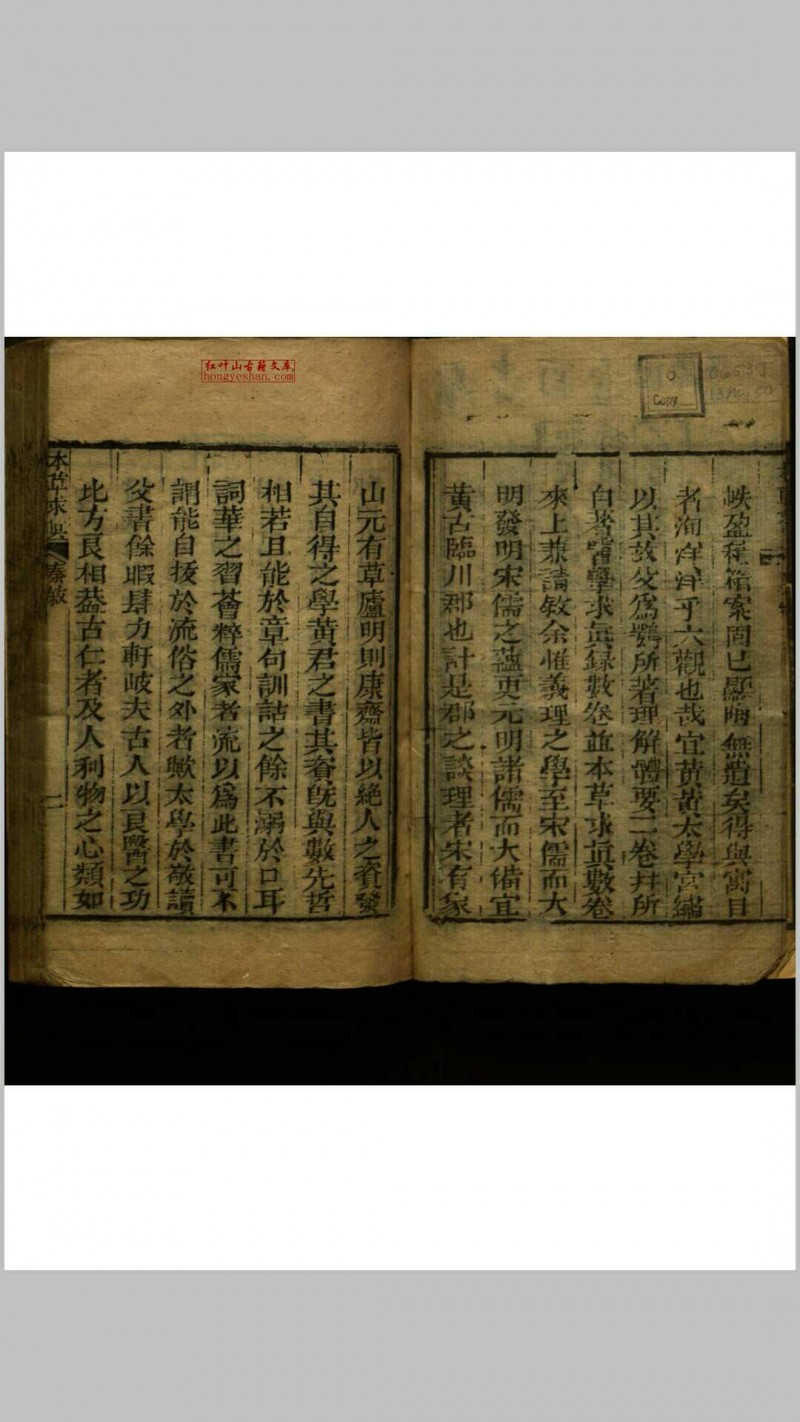 帙盈種祐案固已顯晦無遺矣得與寓目
者洵洋洋乎大觀也哉宜黃黃太學宮繡
以其故父為鶚所著理解體要二卷并所
自著醫學求真錄數卷並本草求真數卷
來上兼請敘余惟義理之學至宋儒而大
明發明宋儒之蘊更元明諸儒而大備宜
黃古臨川郡也計是郡之談理者宋有象
山元有草廬明則康齋皆以絕人之資發
其自得之學黃君之書其看旣與數先哲
相若且能於章句訓詁之餘不溺於口耳
詞華之習薈粹儒家者流以為此書可不
謂能自拔於流俗之外者歟太學於敬讀
父書餘暇肆力軒岐夫古人以良醫之功
比方良相葢古仁者及人利物之心類如
本草求真 秦敘 二
红叶山古籍文库
hongyeshan.com
Copy